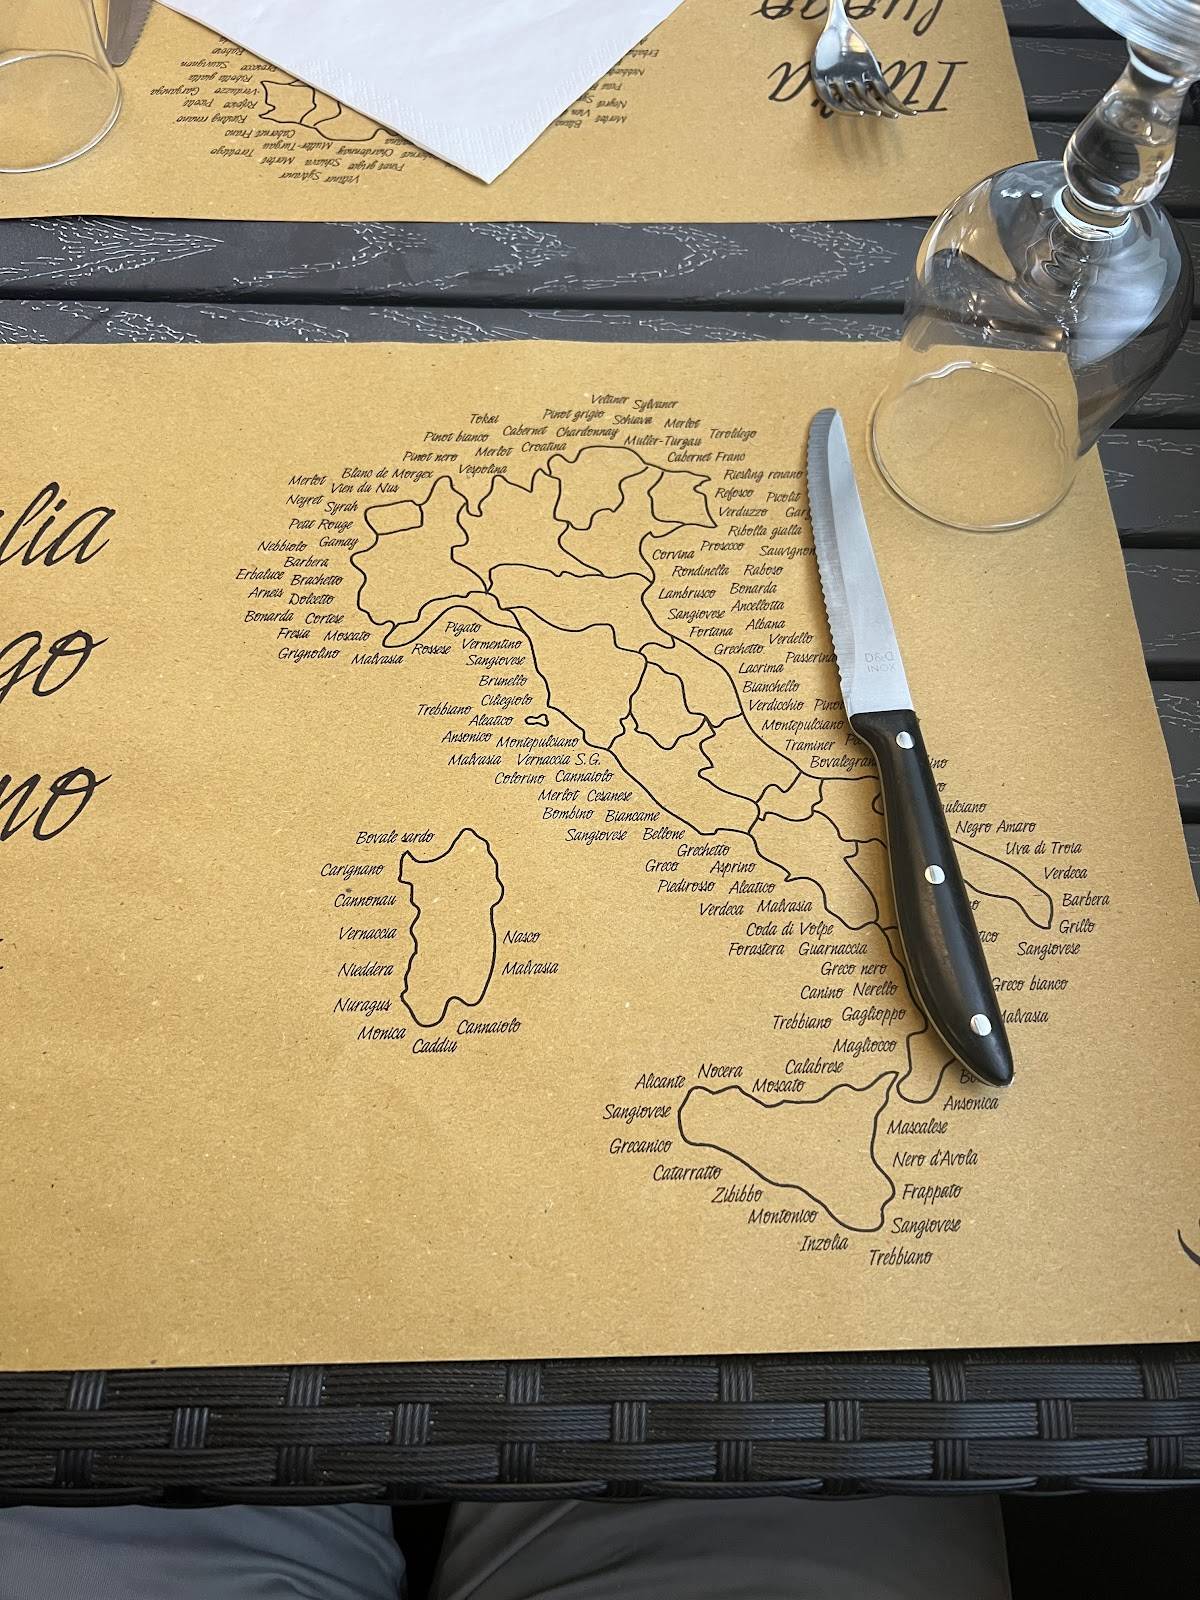 Raboso
Sauvignon
Prosecco
Ribolla gialla
Verduzzo Garganega
Refosco Picolit
Riesling renano
Cabernet Frano
Muller-Turgau Teroldego
Schiava Merlot
Chardonnay
Pinot grigio
Veltiner Sylvaner
Merlot
Neyret
Lungo
lia
go
no
Veltiner Sylvaner
Tokai Pinot grigio Schiava Merlot
Pinot bianco Cabernet Chardonnay Muller-Turgau Teroldego
Pinot nero Merlot Croatina Cabernet Frano
Merlot Blanc de Morgex Vespolina Riesling renano
Vien du Nus
Neyret Syrah Refosco Picolit
Petit Rouge Verduzzo
Nebbiolo Gamay Ribolla gialla
Barbera Corvina Prosecco Sauvignon
Erbaluce Brachetto Rondinella Raboso
Arneis Dolcetto Lambrusco Bonarda
Bonarda Cortese Sangiovese Ancellotta
Fresia Moscato Pigato Fortana Albana
Grignolino Malvasia Rossese Vermentino Grechetto Verdello
Sangiovese Lacrima Passerina
Brunello Bianchello
Ciliegiolo Verdicchio
Trebbiano Aleatico Montepulciano
Ansonico Montepulciano Traminer
Malvasia Vernaccia S.G. Bovalegran
Colorino Cannaiolo
Merlot Cesanese
Bombino Biancame
Sangiovese Bellone Negro Amaro
Grechetto Uva di Troia
Greco Asprino Verdeca
Piedirosso Aleatico Barbera
Verdeca Malvasia Grillo
Coda di Volpe Sangiovese
Forastera Guarnaccia
Greco nero Greco bianco
Canino Nerello
Trebbiano Gaglioppo Malvasia
Magliocco
Calabrese
Bovale sardo
Carignano
Cannonau
Vernaccia Nasco
Nieddera Malvasia
Nuragus
Monica Cannaiolo
Caddiu
Alicante Nocera Moscato Ansonica
Sangiovese Mascalese
Grecanico Nero d'Avola
Catarratto Frappato
Zibibbo
Montonico Sangiovese
Inzolia Trebbiano